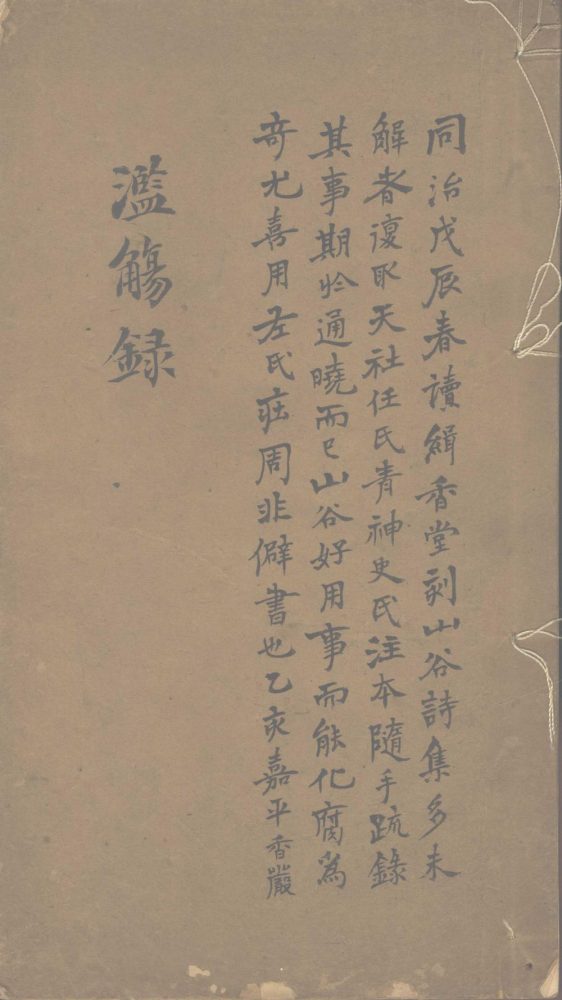 同治戊辰春讀緝香堂刻山谷詩集多未
解者復取天社任氏青神史氏注本隨手疏錄
其事期於通曉而已山谷好用事而能化腐爲
奇尤喜用左氏莊周非僻書也乙亥嘉平香嚴
濫觴録